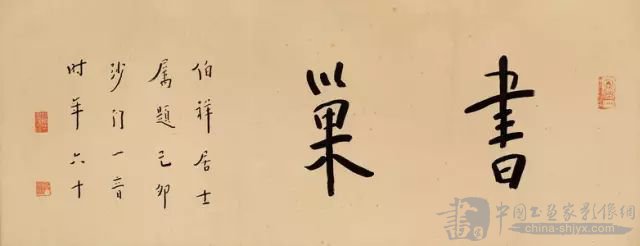 書
巢
伯祥居士
属題己卯
沙门一音
时年六十
書
中国书画家影像網
china-shjyx.com